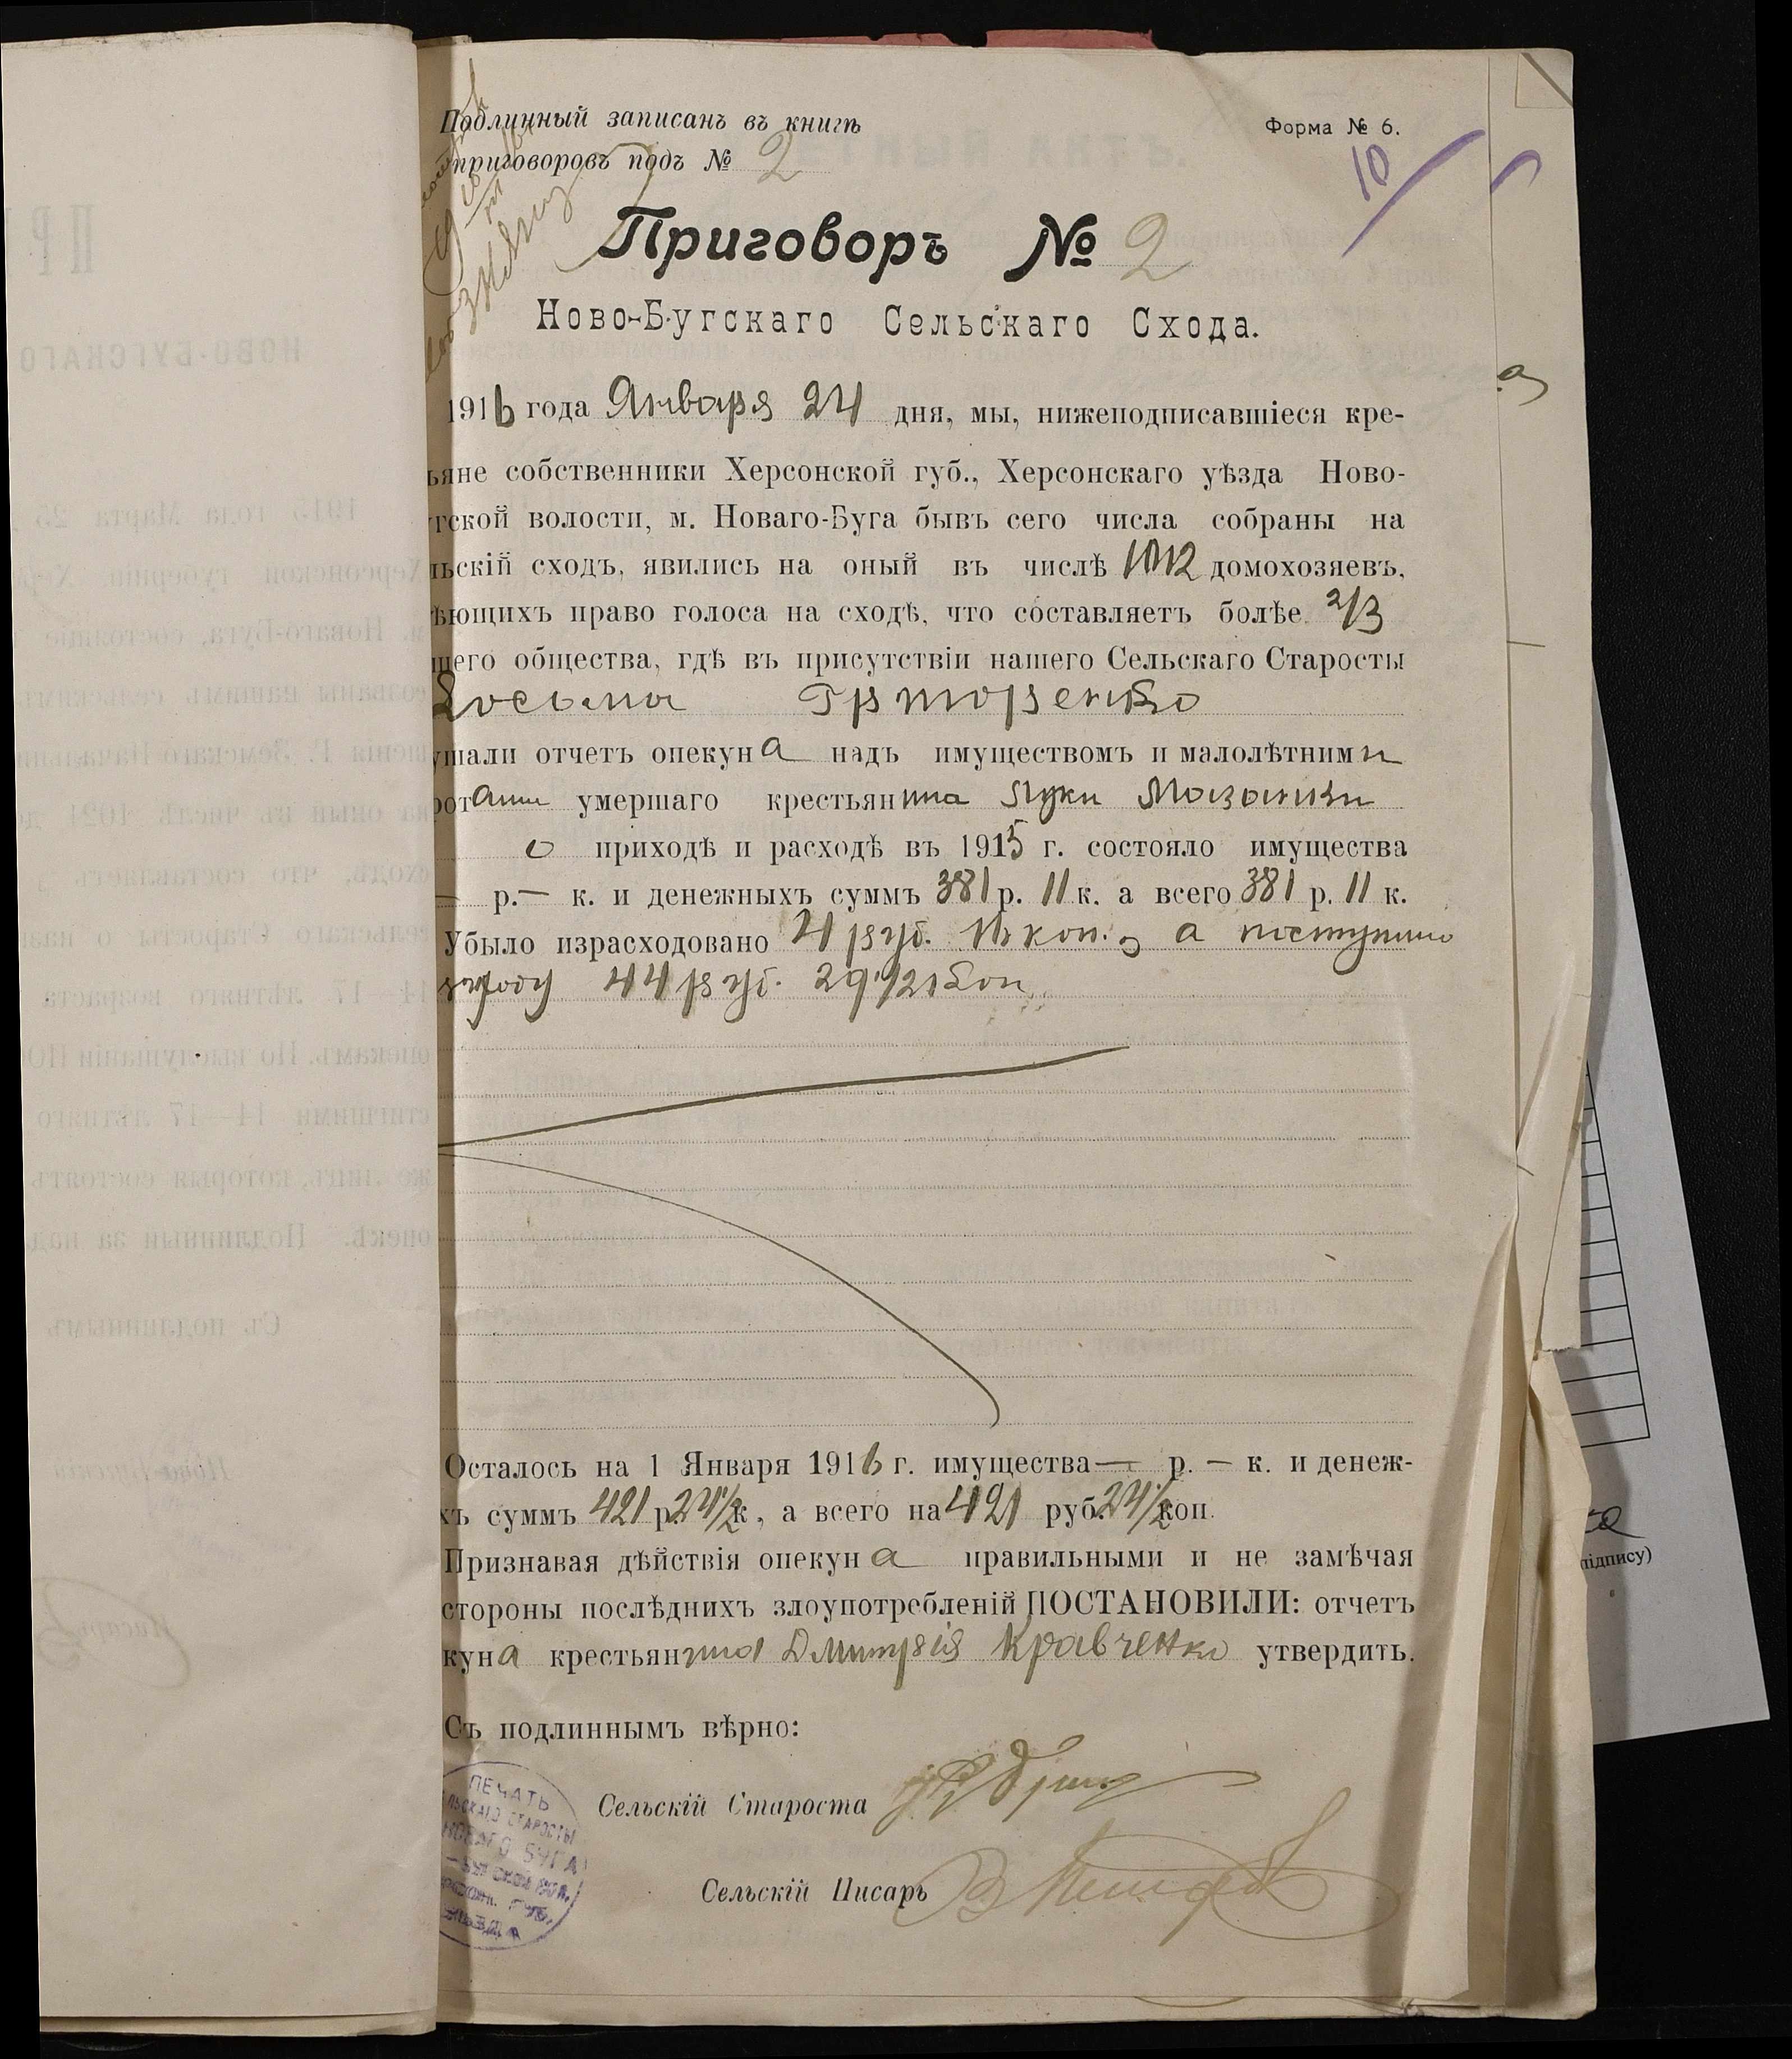 Подлинный записанъ въ книгѣ
приговоровъ подъ № 2
Форма № 6.
10
Приговоръ № 2
Ново-Бугскаго Сельскаго Схода.
1916 года Января 24 дня, мы, нижеподписавшіеся кре-
ьяне собственники Херсонской губ., Херсонскаго уѣзда Ново-
гской волости, м. Новаго-Буга бывъ сего числа собраны на
льскій сходъ, явились на оный въ числѣ 1012 домохозяевъ,
ѣющихъ право голоса на сходѣ, что составляетъ болѣе 2/3
шего общества, гдѣ въ присутствіи нашего Сельскаго Старосты
Косьма
ушали отчетъ опекуна надъ имуществомъ и малолѣтними
ротами умершаго крестьянина Луки Мазанки
о приходѣ и расходѣ въ 1915 г. состояло имущества
— р. — к. и денежныхъ суммъ 381 р. 11 к. а всего 381 р. 11 к.
Убыло израсходовано 4 руб. 16 коп., а поступило
44 руб. 29 1/2 коп.
Осталось на 1 Января 1916 г. имущества — р. — к. и денеж-
хъ суммъ 421 р. 24 1/2 к., а всего на 421 руб. 24 1/2 коп.
Признавая дѣйствія опекуна правильными и не замѣчая
стороны послѣднихъ злоупотребленій ПОСТАНОВИЛИ: отчетъ
куна крестьянина Дмитрія Кравченко утвердить.
Съ подлиннымъ вѣрно:
Сельскій Староста
Сельскій Писарь
ПЕЧАТЬ
ЛЬСКАГО СТАРОСТЫ
НОВАГО БУГА
підпису)